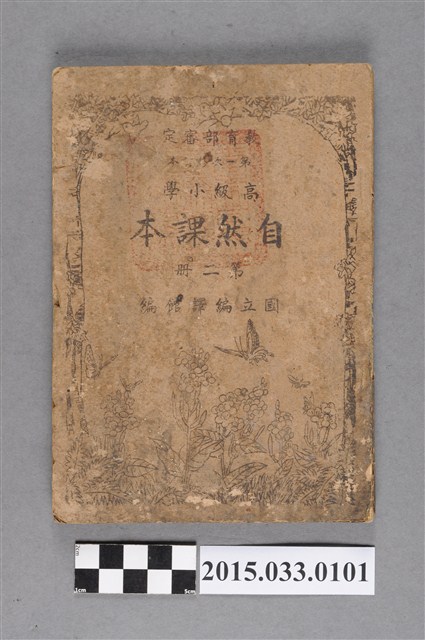 教育部審定
高級小學
自然課本
第二冊
國立編譯館編
2cm
1cm
5cm
2015.033.0101